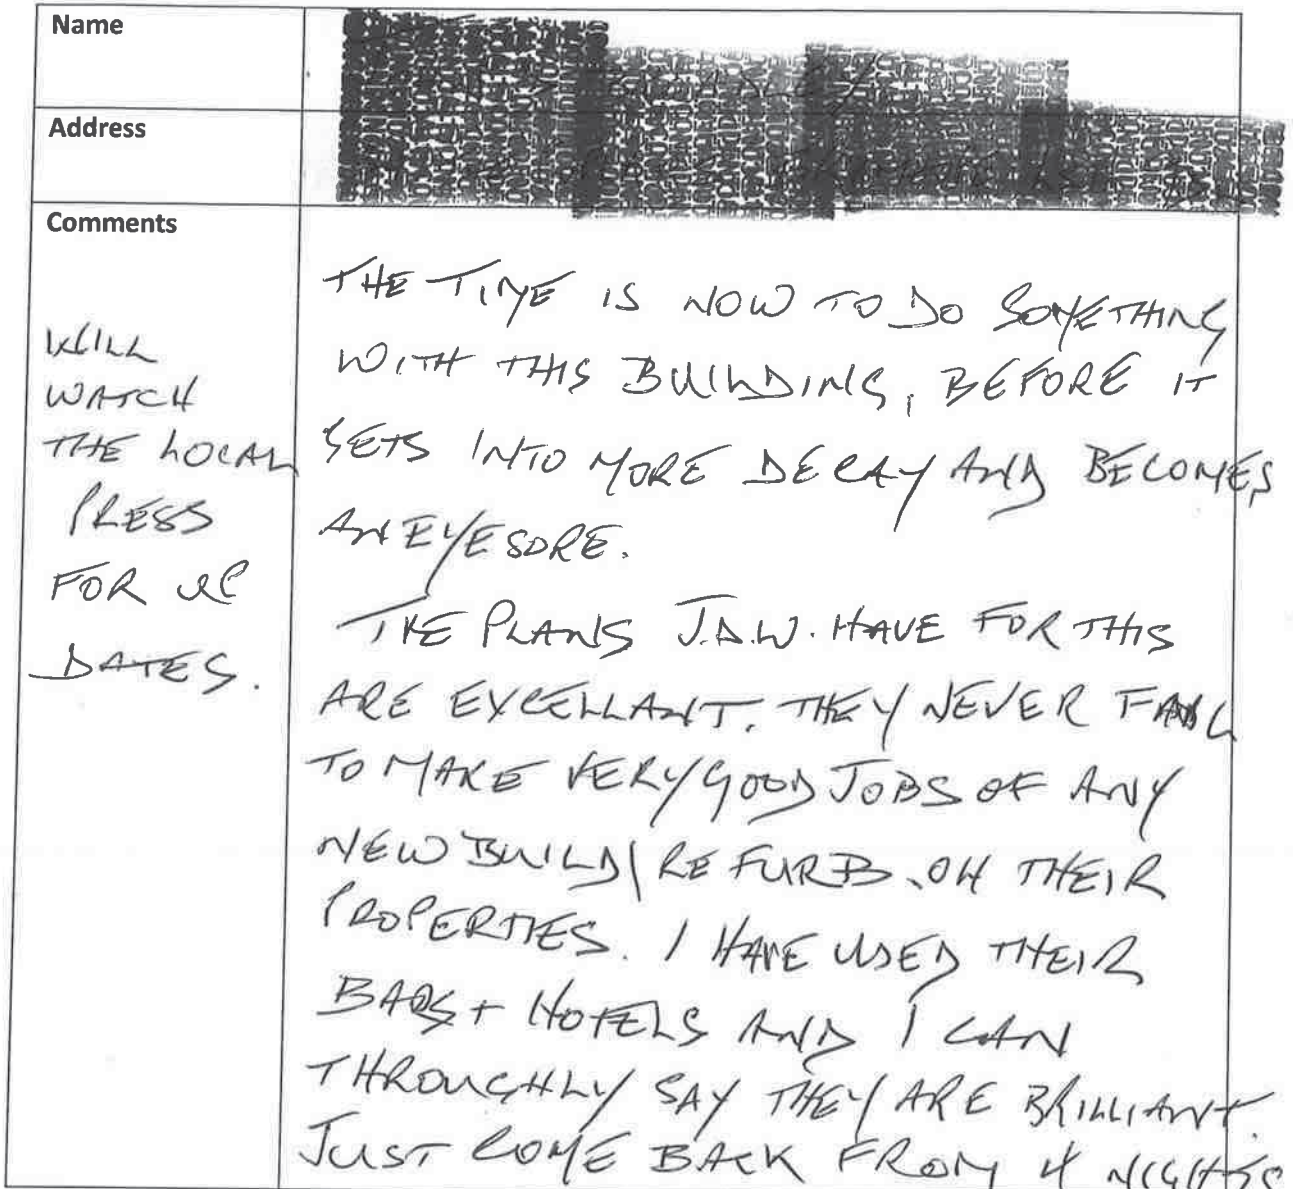 Name
Address
Comments
WILL
WATCH
THE LOCAL
PRESS
FOR UP
DATES.
THE TIME IS NOW TO DO SOMETHING
WITH THIS BUILDING, BEFORE IT
GETS INTO MORE DECAY AND BECOMES
AN EYESORE.
THE PLANS J.D.W. HAVE FOR THIS
ARE EXCELLANT. THEY NEVER FAIL
TO MAKE VERY GOOD JOBS OF ANY
NEW BUILD/REFURB. ON THEIR
PROPERTIES. I HAVE USED THEIR
BARS + HOTELS AND I CAN
THROUGHLY SAY THEY ARE BRILLIANT.
JUST COME BACK FROM 4 NIGHTS